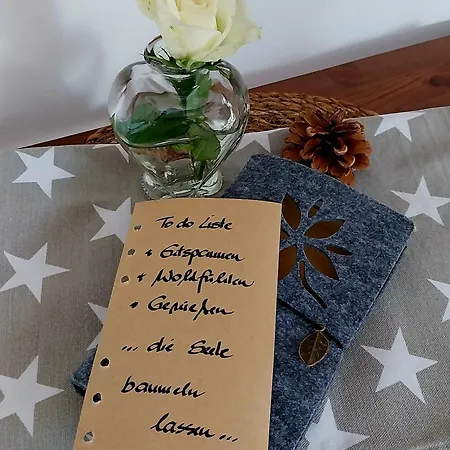 To do Liste
+ Entspannen
+ Wohlfühlen
+ Genießen
... die Seele
baumeln
lassen ...